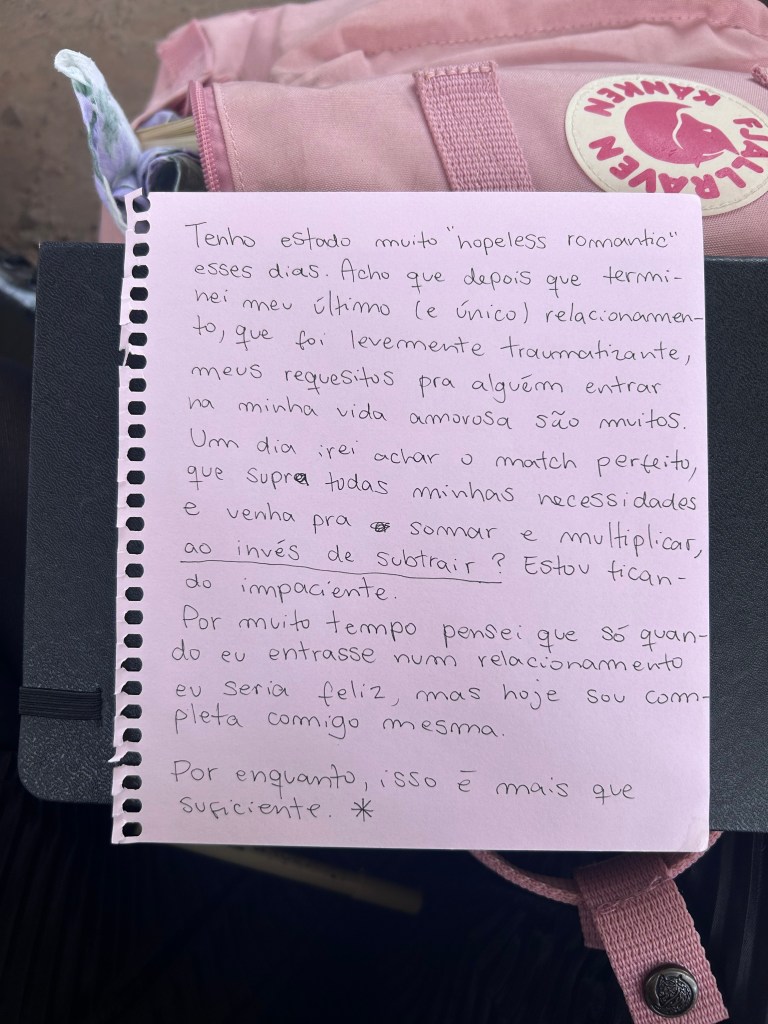 FJALLRAVEN
KANKEN
Tenho estado muito "hopeless romantic"
esses dias. Acho que depois que termi-
nei meu último (e único) relacionamen-
to, que foi levemente traumatizante,
meus requesitos pra alguém entrar
na minha vida amorosa são muitos.
Um dia irei achar o match perfeito,
que supra todas minhas necessidades
e venha pra somar e multiplicar,
ao invés de subtrair? Estou fican-
do impaciente.
Por muito tempo pensei que só quan-
do eu entrasse num relacionamento
eu seria feliz, mas hoje sou com-
pleta comigo mesma.
Por enquanto, isso é mais que
suficiente. *